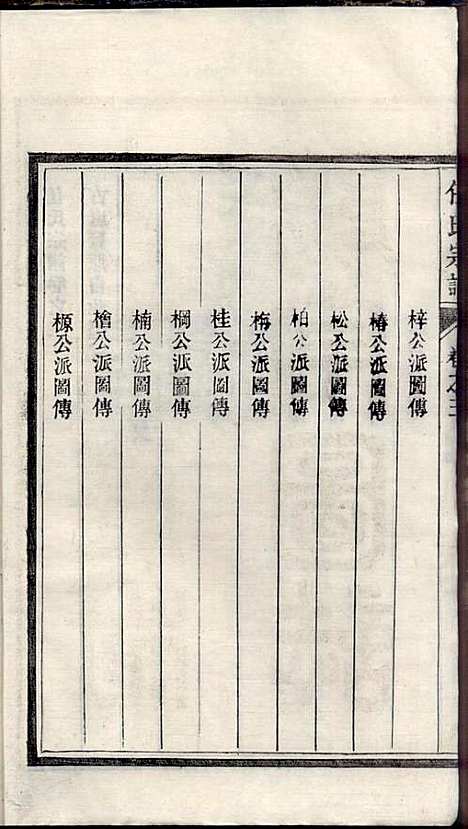 氏宗譜
卷之三
梓公派圖傳
椿公派圖傳
松公派圖傳
柏公派圖傳
梅公派圖傳
桂公派圖傳
棡公派圖傳
楠公派圖傳
檜公派圖傳
榞公派圖傳